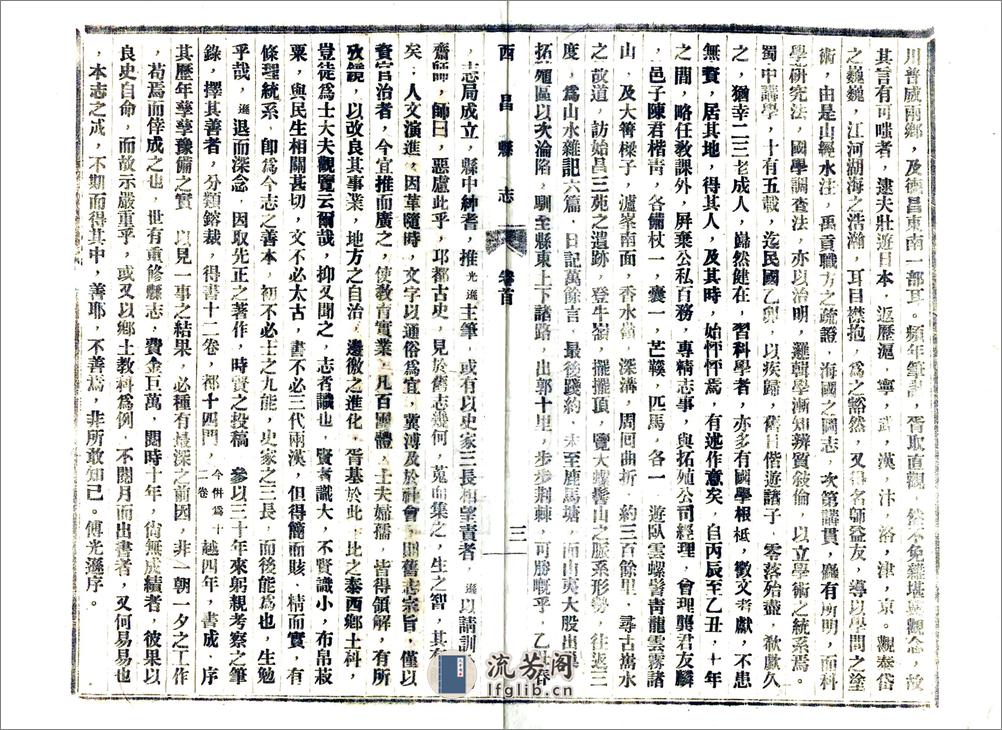 川普威兩鄉，及德昌東南一部耳。頻年筆記，胥取直觀，然不免離墟懸觀念，故
其言有可嗤者，逮夫壯遊日本，返歷滬，寧，武，漢，汴，洛，津，京。觀泰岱
之巍巍，江河湖海之浩瀚，耳目襟抱，爲之豁然，又得名師益友，導以學問之塗
術，由是山經水注，禹貢職方之疏證，海國之圖志，次第講貫，徧有所明，而科
學研究法，國學調查法，亦以治明，邏輯學漸知辨質敍倫，以立學術之統系焉。
蜀中講學，十有五載，迄民國乙卯，以疾歸，舊日偕遊諸子，零落殆盡，欷歔久
之，猶幸二三老成人，巋然健在，習科學者，亦多有國學根柢，徵文考獻，不患
無資，居其地，得其人，及其時，始怦怦焉，有述作意矣，自丙辰至乙丑，十年
之間，略任教課外，屏棄公私百務，專精志事，與拓殖公司經理，會理龔君友麟
，邑子陳君楷靑，各備杖一，囊一，芒鞵，匹馬，各一，遊臥雲螺髻靑龍雲霧諸
山，及大箐樑子，瀘峯南面，香水僊，深溝，周回曲折，約三百餘里，尋古巂水
之故道，訪始昌三苑之遺跡，登牛嶺，擺擺頂，覽大螺髻山之脈系形勢，往返三
度，爲山水雜記六篇，日記萬餘言，最後踐約，未至鹿馬塘，而山夷大股出
拓殖區以次淪陷，馴至縣東上下諸路，出郭十里，步步荆棘，可勝嘅乎，乙 春
西昌縣志 卷首 三
，志局成立，縣中紳耆，推光遜主筆，或有以史家三長相望責者，遜以請訓
齋師，師曰，惡虛此乎，邛都古史，見於舊志幾何，蒐而集之，生之智，其有
矣，人文演進，因革隨時，文字以通俗爲宜，冀溥及於社會，則舊志宗旨，僅以
資官治者，今宜推而廣之，使教育實業，凡百團體，士夫婦孺，皆得領解，有所
攷鏡，以改良其事業，地方之自治，邊徼之進化，胥基於此，比之泰西鄉土科，
豈徒爲士大夫觀覽云爾哉，抑又聞之，志者識也，賢者識大，不賢識小，布帛菽
粟，與民生相關甚切，文不必太古，書不必三代兩漢，但得簡而賅，精而實，有
條理統系，卽爲今志之善本，初不必士之九能，史家之三長，而後能爲也，生勉
乎哉，遜退而深念，因取先正之著作，時賢之投稿，參以三十年來躬親考察之筆
錄，擇其善者，分類鎔裁，得書十二卷，都十四門，今併爲十二卷 越四年，書成，序
其歷年孳孳豫備之實，以見一事之結果，必種有最深之前因，非一朝一夕之工作
，苟焉而倖成之也，世有重修縣志，費金巨萬，閱時十年，尙無成績者，彼果以
良史自命，而故示嚴重乎，或又以鄉土教科爲例，不閱月而出書者，又何易易也
，本志之成，不期而得其中，善耶，不善焉，非所敢知已。傅光遜序。
流芳阁
lfglib.cn